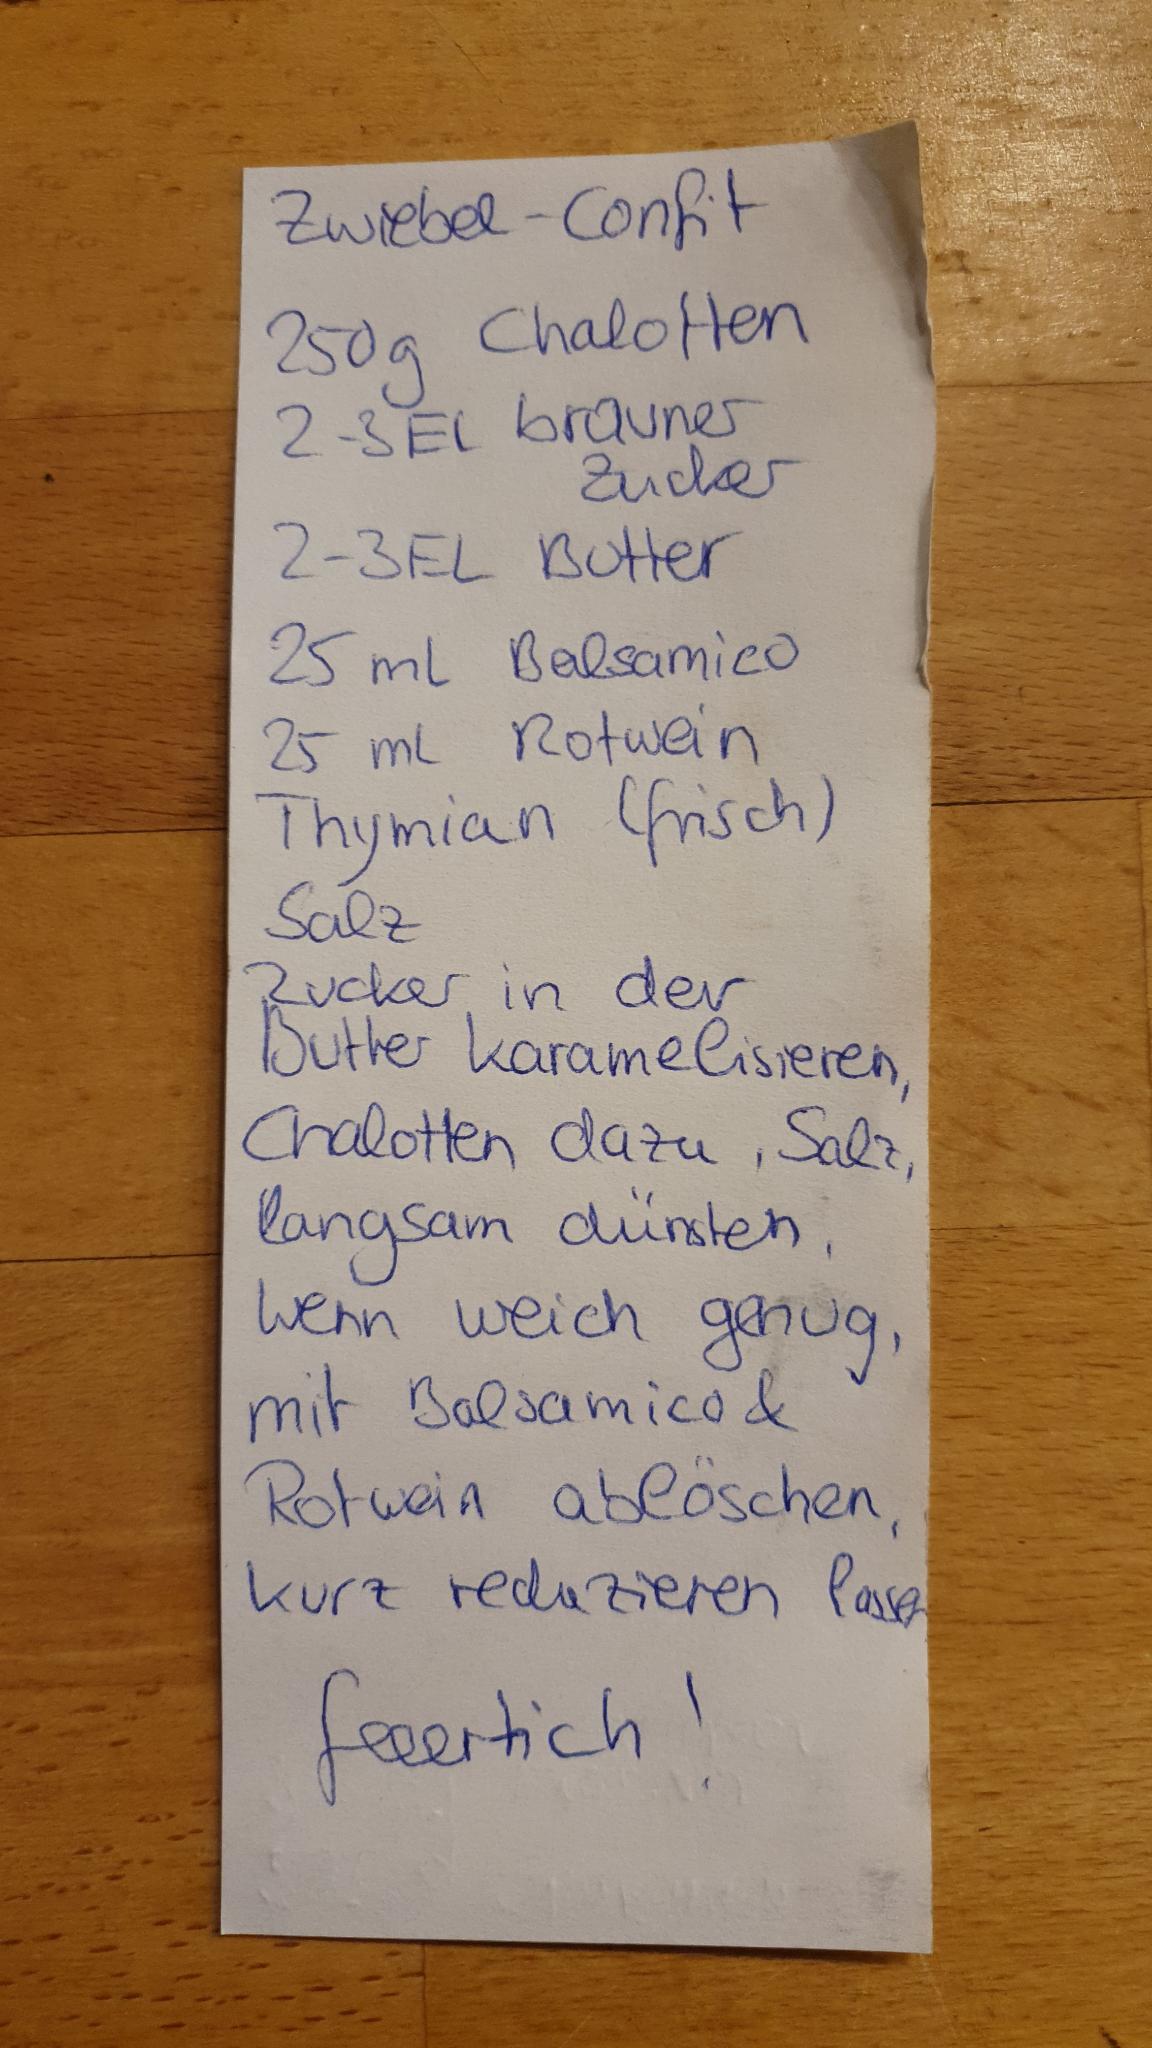 Zwiebel-Confit
250g Chalotten
2-3EL brauner
Zucker
2-3EL Butter
25 ml Balsamico
25 ml Rotwein
Thymian (frisch)
Salz
Zucker in der
Butter karamelisieren,
Chalotten dazu, Salz,
langsam dünsten,
wenn weich genug,
mit Balsamico &
Rotwein ablöschen,
kurz reduzieren lassen
feeertich!